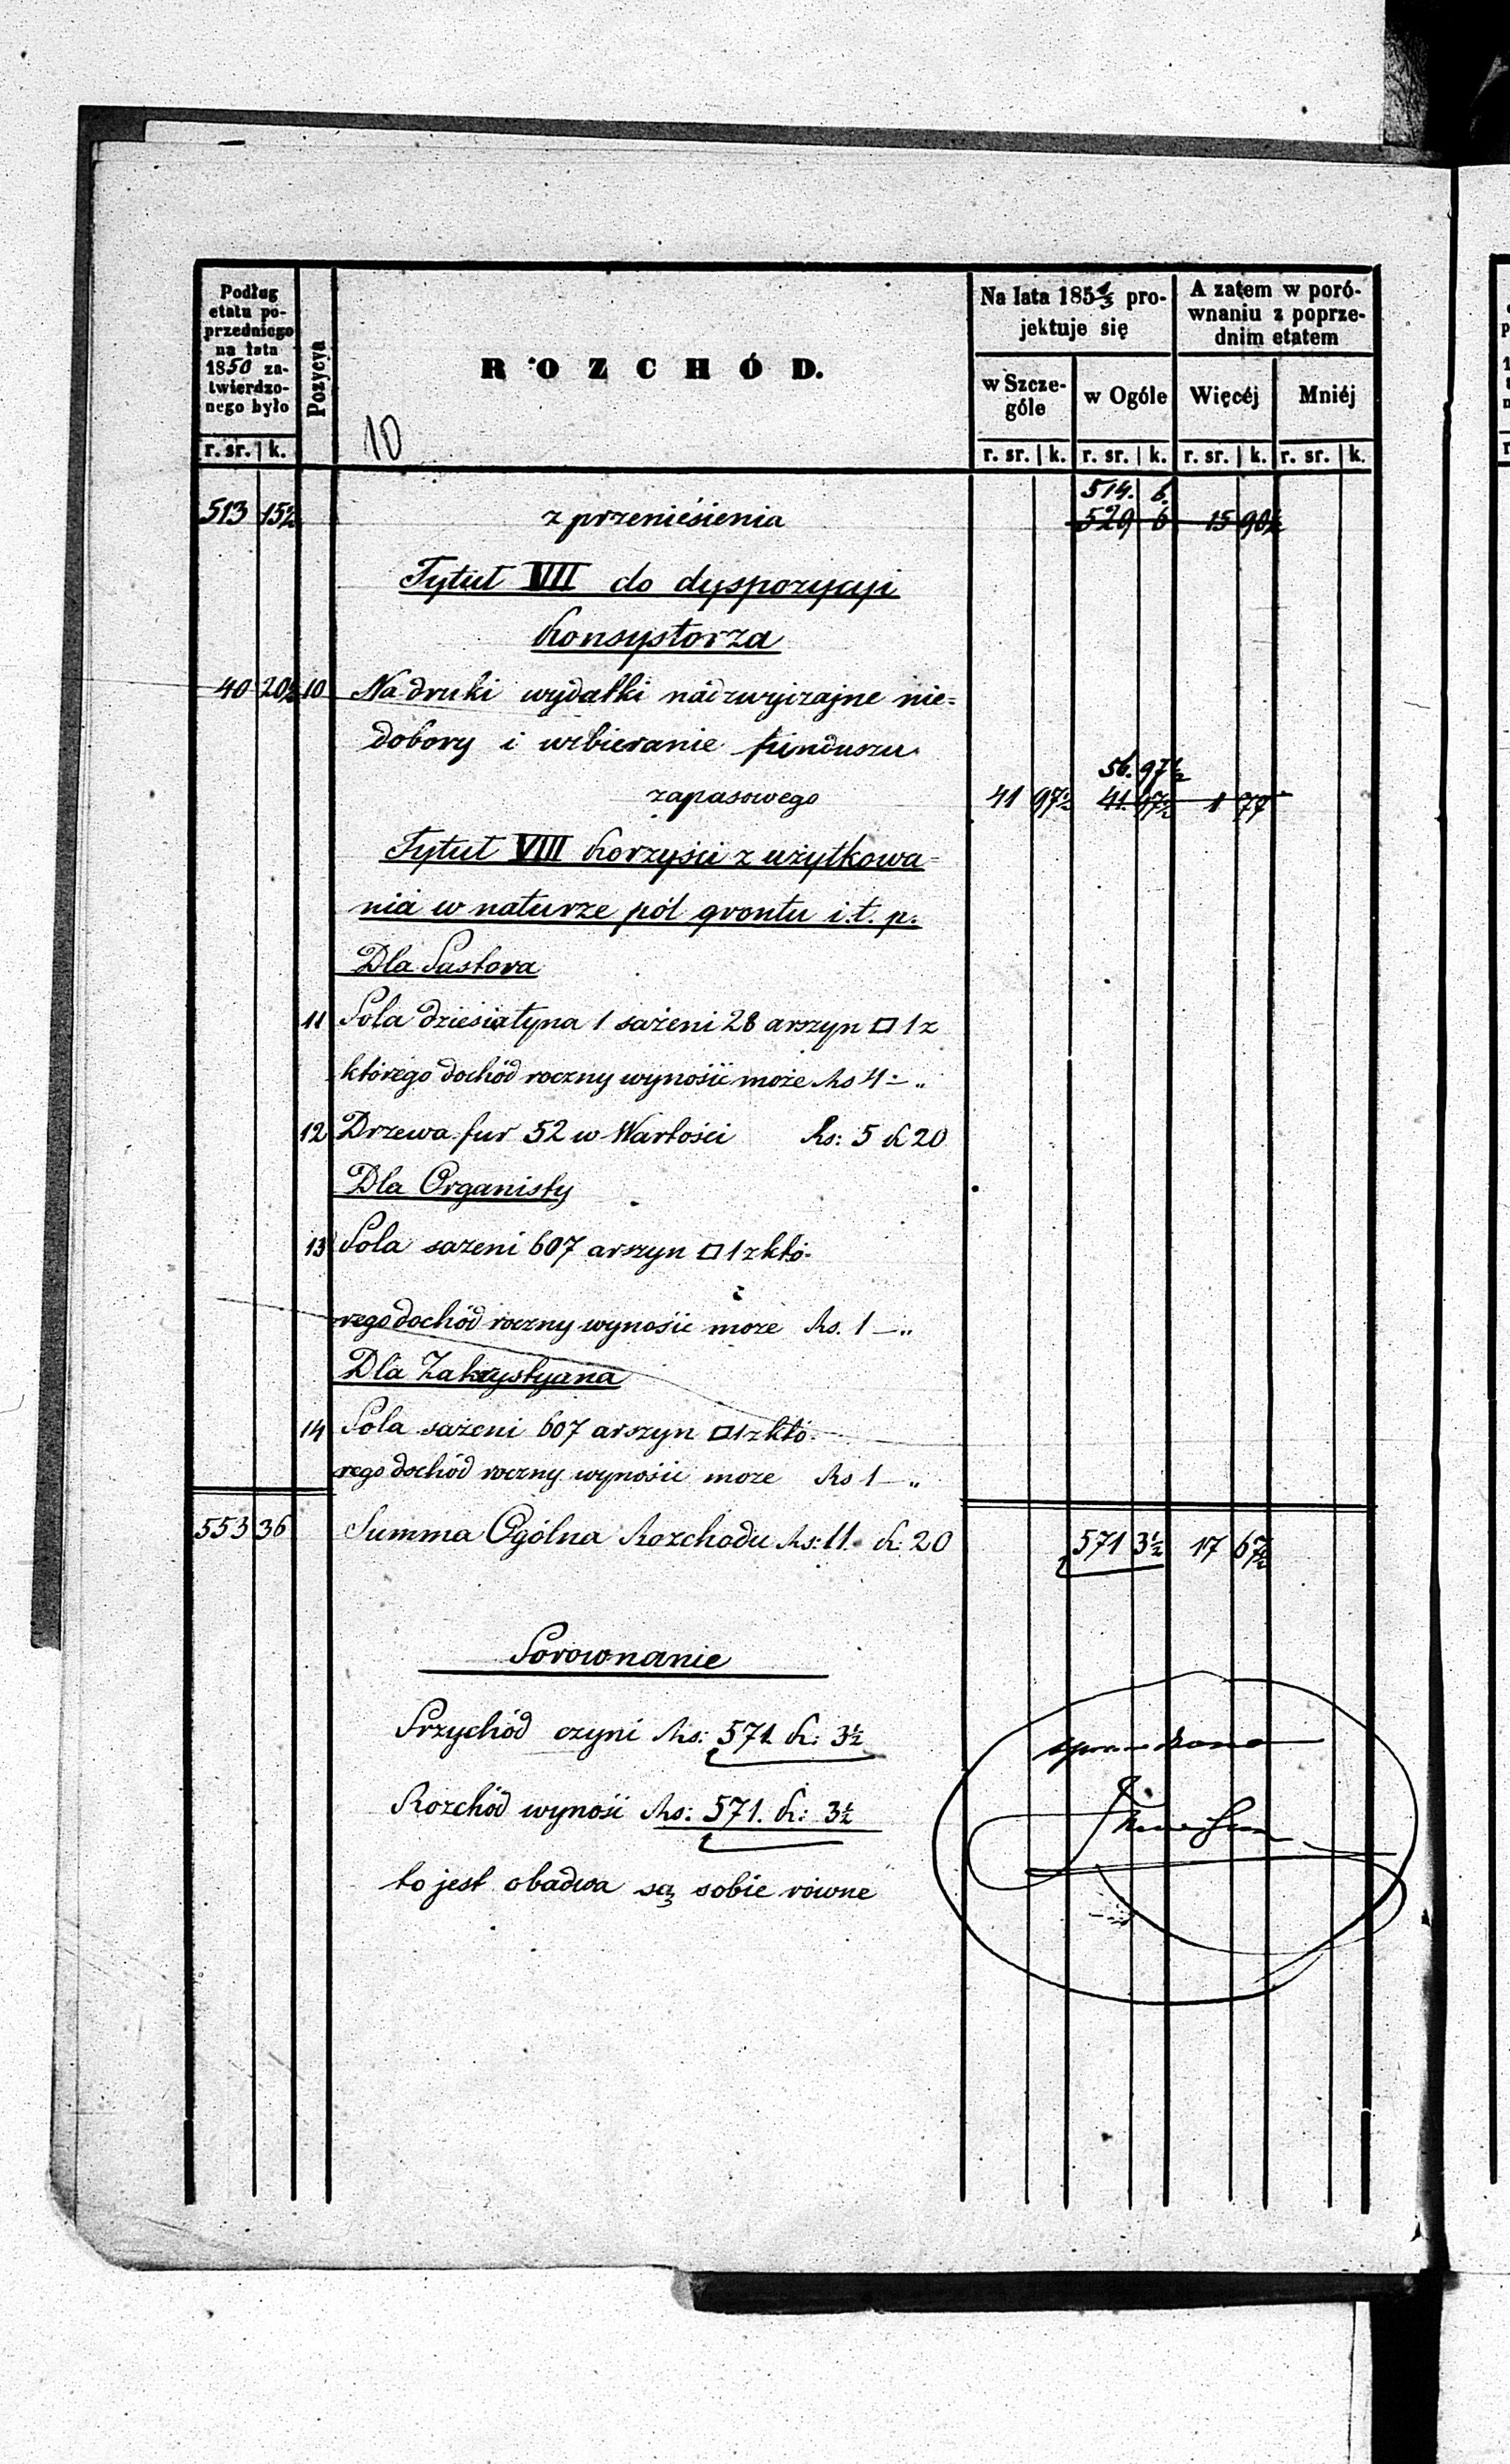 Podług
etatu po-
przedniego
na lata
1850 za-
twierdzo-
nego było
r. sr. k.
Pozycya
ROZCHÓD.
10
Na lata 185 pro-
jektuje się
w Szcze-
góle
w Ogóle
r. sr. k. r. sr. k.
A zatem w poró-
wnaniu z poprze-
dnim etatem
Więcéj Mniéj
r. sr. k. r. sr. k.
514. 6.
513 15½ z przeniesienia 529 6 15 90½
Tytuł VII do dyspozycyi
Konsystorza
40 20½ 10 Na druki wydatki nadzwyczajne nie=
dobory i uzbieranie funduszu
56. 97½
zapasowego 41 97½ 41. 97½ 1 77
Tytuł VIII Korzyści z użytkowa=
nia w naturze pól gruntu i.t.p.
Dla Pastora
11 Pola dziesiatyna 1 sażeni 28 arszyn □ 1 z
którego dochód roczny wynosić może Rs 4 - „
12 Drzewa fur 52 w Wartości Rs: 5 K 20
Dla Organisty
13 Pola sazeni 607 arszyn □ 1 z któ-
rego dochód roczny wynosić może Rs. 1 - „
Dla Zakrystyana
14 Pola sażeni 607 arszyn □ 1 z któ-
rego dochód roczny wynosić moze Rs 1 - „
553 36 Summa Ogólna Rozchodu Rs: 11. K. 20 571 3½ 17 67½
Porownanie
Przychód czyni Rs: 571 K: 3½
Rozchód wynosi Rs: 571. K: 3½
to jest obadwa są sobie równe